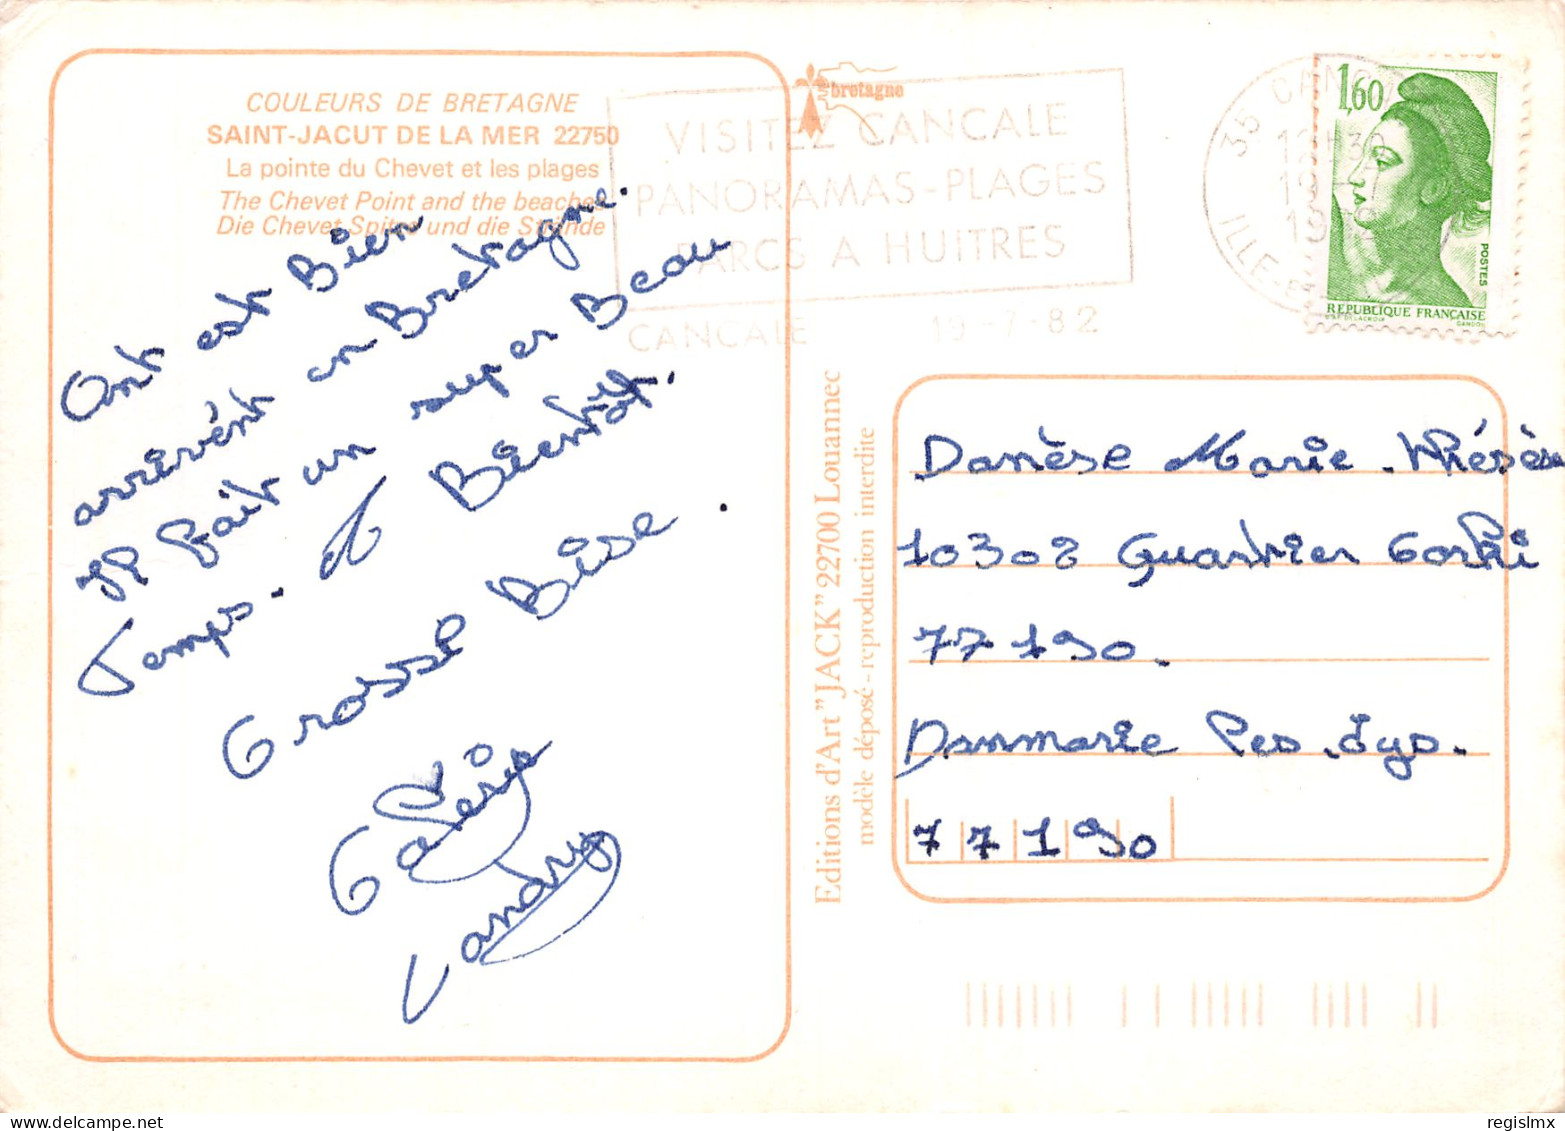 COULEURS DE BRETAGNE
SAINT-JACUT DE LA MER 22750
La pointe du Chevet et les plages
The Chevet Point and the beaches
Die Chevet Spitze und die Strände
Ont est Bien
arrivént en Bretagne.
Il fait un super Beau
Temps. A Bientôt.
Grosse Bise.
Valérie
Landry
bretagne
VISITEZ CANCALE
PANORAMAS-PLAGES
PARCS A HUITRES
CANCALE 19-7-82
35 CANCALE
ILLE-ET
1,60
POSTES
REPUBLIQUE FRANÇAISE
GANDON
Editions d'Art "JACK" 22700 Louannec
modèle déposé - reproduction interdite
Danèse Marie Thérèse
10302 Quartier Gorki
77190.
Danmarie Les Lys.
77190
regislmx